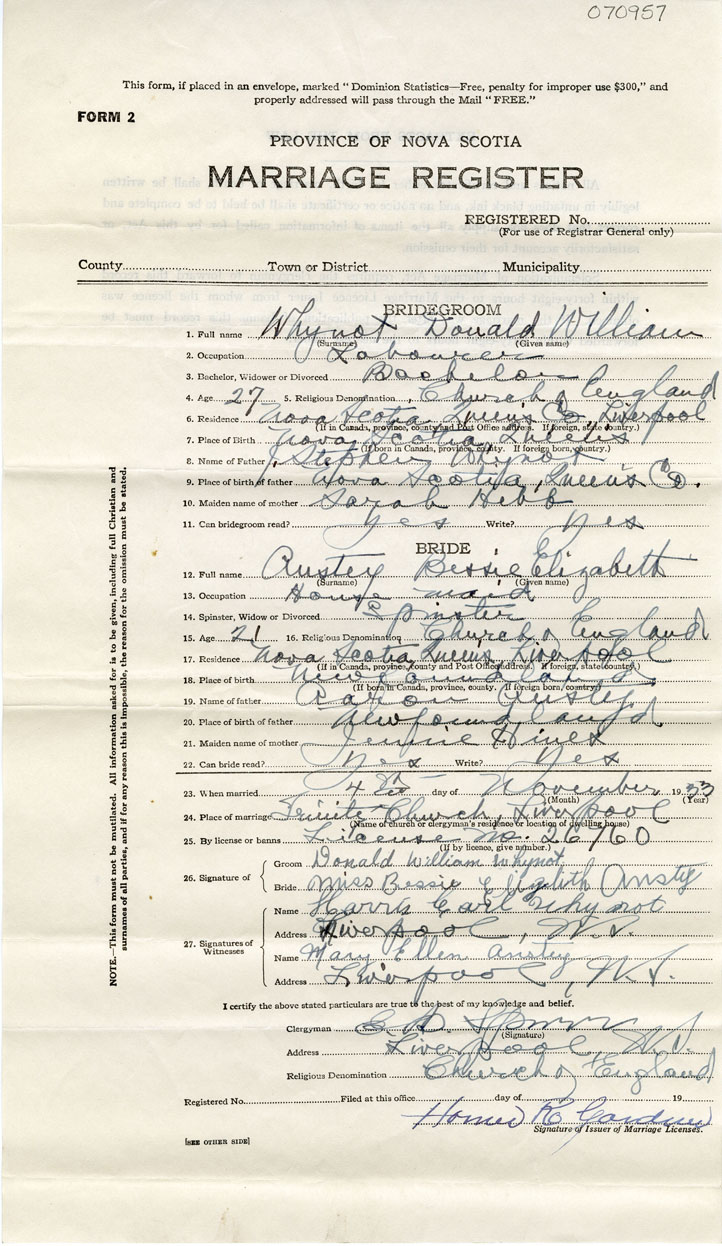 070957
This form, if placed in an envelope, marked “ Dominion Statistics—Free, penalty for improper use $300,” and
properly addressed will pass through the Mail “ FREE.”
FORM 2
PROVINCE OF NOVA SCOTIA
MARRIAGE REGISTER
REGISTERED No.
(For use of Registrar General only)
County Town or District Municipality
BRIDEGROOM
1. Full name Whynot Donald William
(Surname) (Given name)
2. Occupation Labourer
3. Bachelor, Widower or Divorced Bachelor
4. Age 27 5. Religious Denomination Church of England
6. Residence Nova Scotia Queens Co. Liverpool
(If in Canada, province, county and Post Office address. If foreign, state country.)
7. Place of Birth Nova Scotia Queens
(If born in Canada, province, county. If foreign born, country.)
8. Name of Father Stephen Whynot
9. Place of birth of father Nova Scotia, Queens Co.
10. Maiden name of mother Sarah Hebb
11. Can bridegroom read? Yes Write? Yes
BRIDE
12. Full name Anstey Bessie Elizabeth
(Surname) (Given name)
13. Occupation House maid
14. Spinster, Widow or Divorced Spinster
15. Age 21 16. Religious Denomination Church of England
17. Residence Nova Scotia Queens Liverpool
(If in Canada, province, county and Post Office address. If foreign, state country.)
18. Place of birth Newfoundland
(If born in Canada, province, county. If foreign born, country)
19. Name of father Anstey
20. Place of birth of father Newfoundland
21. Maiden name of mother Jennie Hines
22. Can bride read? Yes Write? Yes
23. When married 4 day of November 1933
(Month) (Year)
24. Place of marriage Trinity Church, Liverpool
(Name of church or clergyman's residence or location of dwelling house)
25. By license or banns License No. 26160
(If by license, give number.)
26. Signature of
Groom Donald William Whynot
Bride Miss Bessie Elizabeth Ansty
27. Signatures of Witnesses
Name Harry Earl Whynot
Address Liverpool, N.S.
Name Mary Ellen Ansty
Address Liverpool, N.S.
I certify the above stated particulars are true to the best of my knowledge and belief.
Clergyman
(Signature)
Address Liverpool, N.S.
Religious Denomination Church of England
Registered No. Filed at this office day of 19
Homer K Gardner
Signature of Issuer of Marriage Licenses.
[SEE OTHER SIDE]
NOTE.—This form must not be mutilated. All information asked for is to be given, including full Christian and
surnames of all parties, and if for any reason this is impossible, the reason for the omission must be stated.